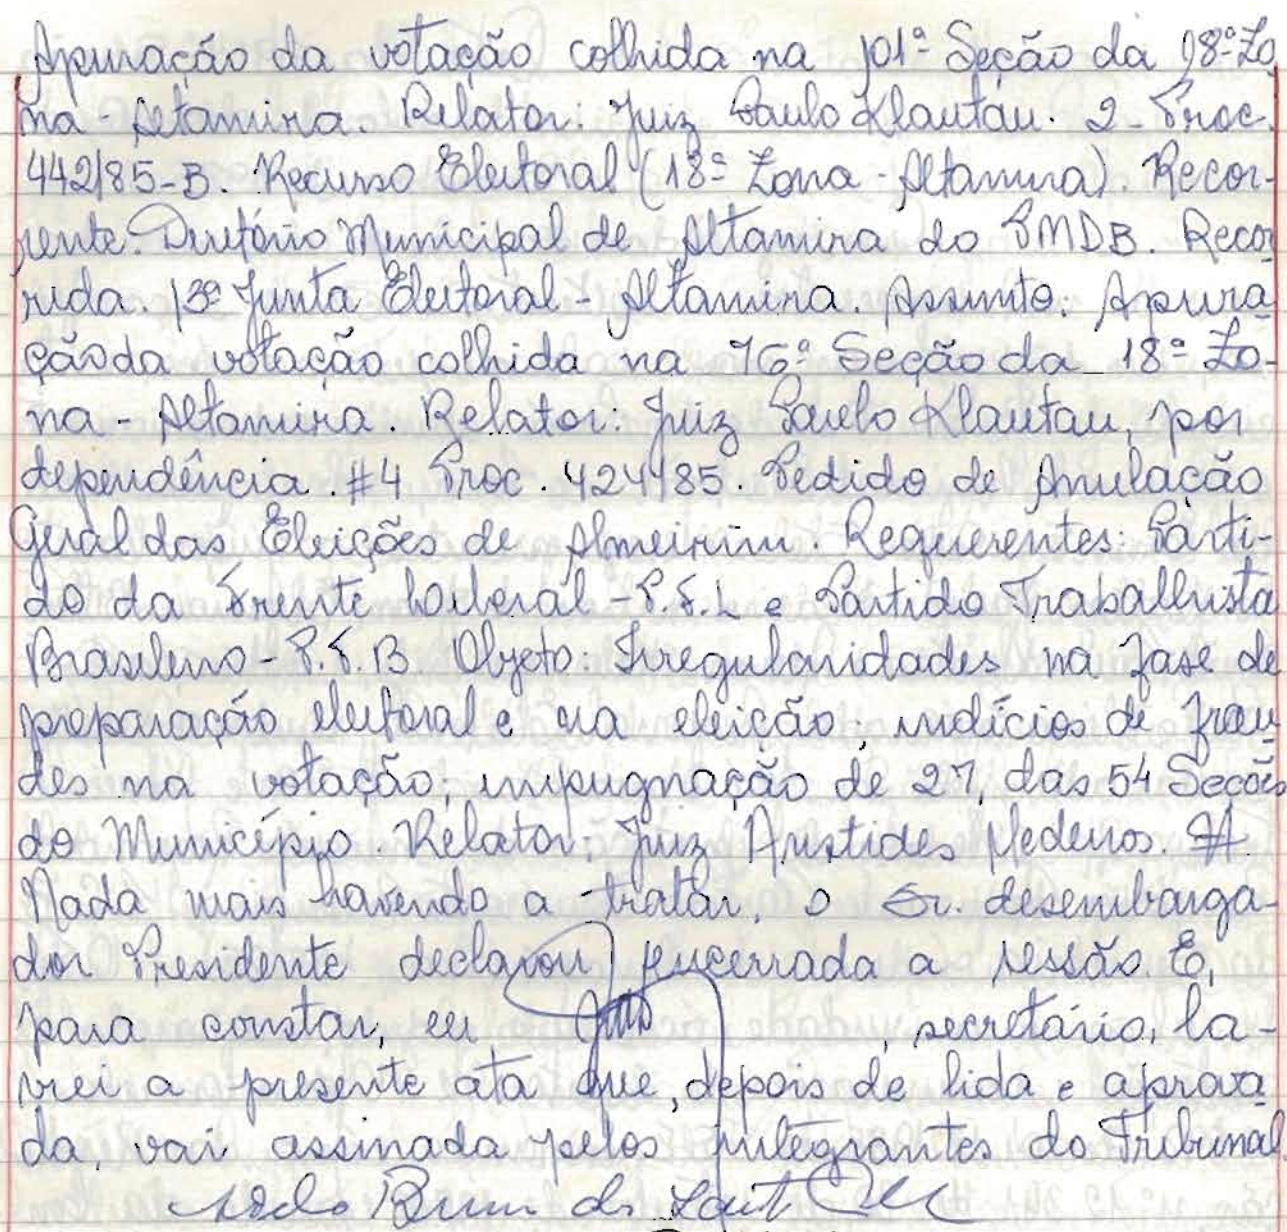 Apuração da votação colhida na 101ª Seção da 18ª Zo
na - Altamira. Relator: Juiz Paulo Klautau. 2 - Proc.
442/85-B. Recurso Eleitoral (18ª Zona - Altamira). Recor-
rente: Diretório Municipal de Altamira do PMDB. Recor
rida. 13ª Junta Eleitoral - Altamira. Assunto: Apura
ção da votação colhida na 76ª Seção da 18ª Zo-
na - Altamira. Relator: Juiz Paulo Klautau, por
dependência. #4 Proc. 424/85. Pedido de Anulação
Geral das Eleições de Almeirim. Requerentes: Parti-
do da Frente Liberal - P.F.L e Partido Trabalhista
Brasileiro - P.T.B. Objeto: Irregularidades na fase de
preparação eleitoral e na eleição; indícios de frau
des na votação; impugnação de 27, das 54 Secões
do Município. Relator: Juiz Aristides Medeiros. #
Nada mais havendo a tratar, o Sr. desembarga-
dor Presidente declarou encerrada a sessão. E,
para constar, eu , secretário, la-
vrei a presente ata que, depois de lida e aprova
da, vai assinada pelos integrantes do Tribunal.